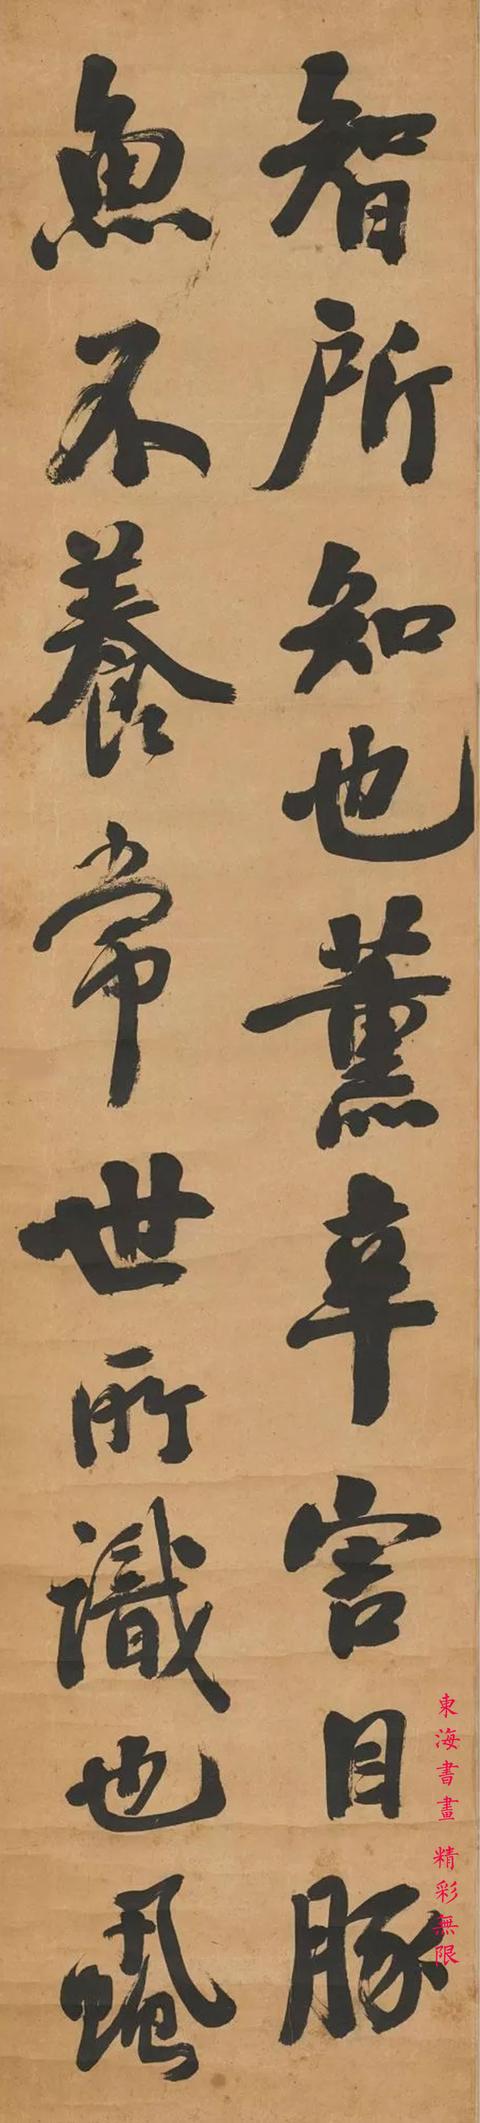 智所知也薰辛害目豚
魚不養常世所識也蝨
東海書畫 精彩無限